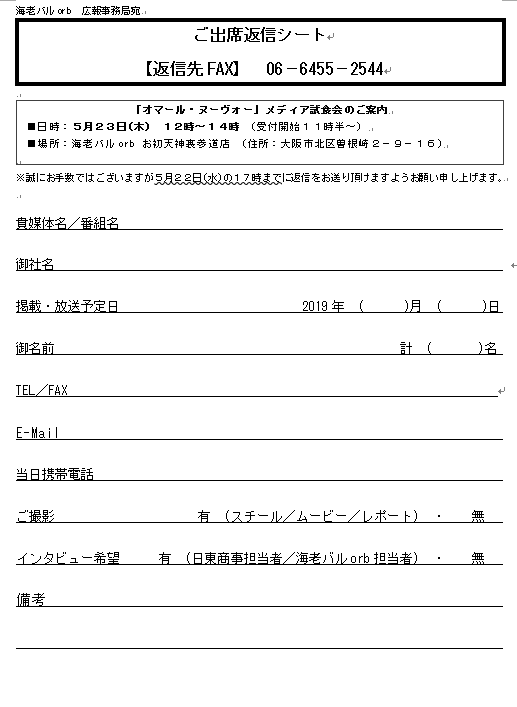 海老バル orb　広報事務局宛
ご出席返信シート
【返信先 FAX】　06－6455－2544
「オマール・ヌーヴォー」メディア試食会のご案内
■日時：５月２３日(木)　１２時～１４時　（受付開始１１時半～）
■場所：海老バル orb お初天神裏参道店　（住所：大阪市北区曽根崎２－９－１６）
※誠にお手数ではございますが５月２２日(水)の１７時までに返信をお送り頂けますようお願い申し上げます。
貴媒体名／番組名
御社名
掲載・放送予定日　2019 年　(　　　)月　(　　　)日
御名前　計　(　　　)名
TEL／FAX
E-Mail
当日携帯電話
ご撮影　有　（スチール／ムービー／レポート）　・　無
インタビュー希望　有　（日東商事担当者／海老バル orb 担当者）　・　無
備考